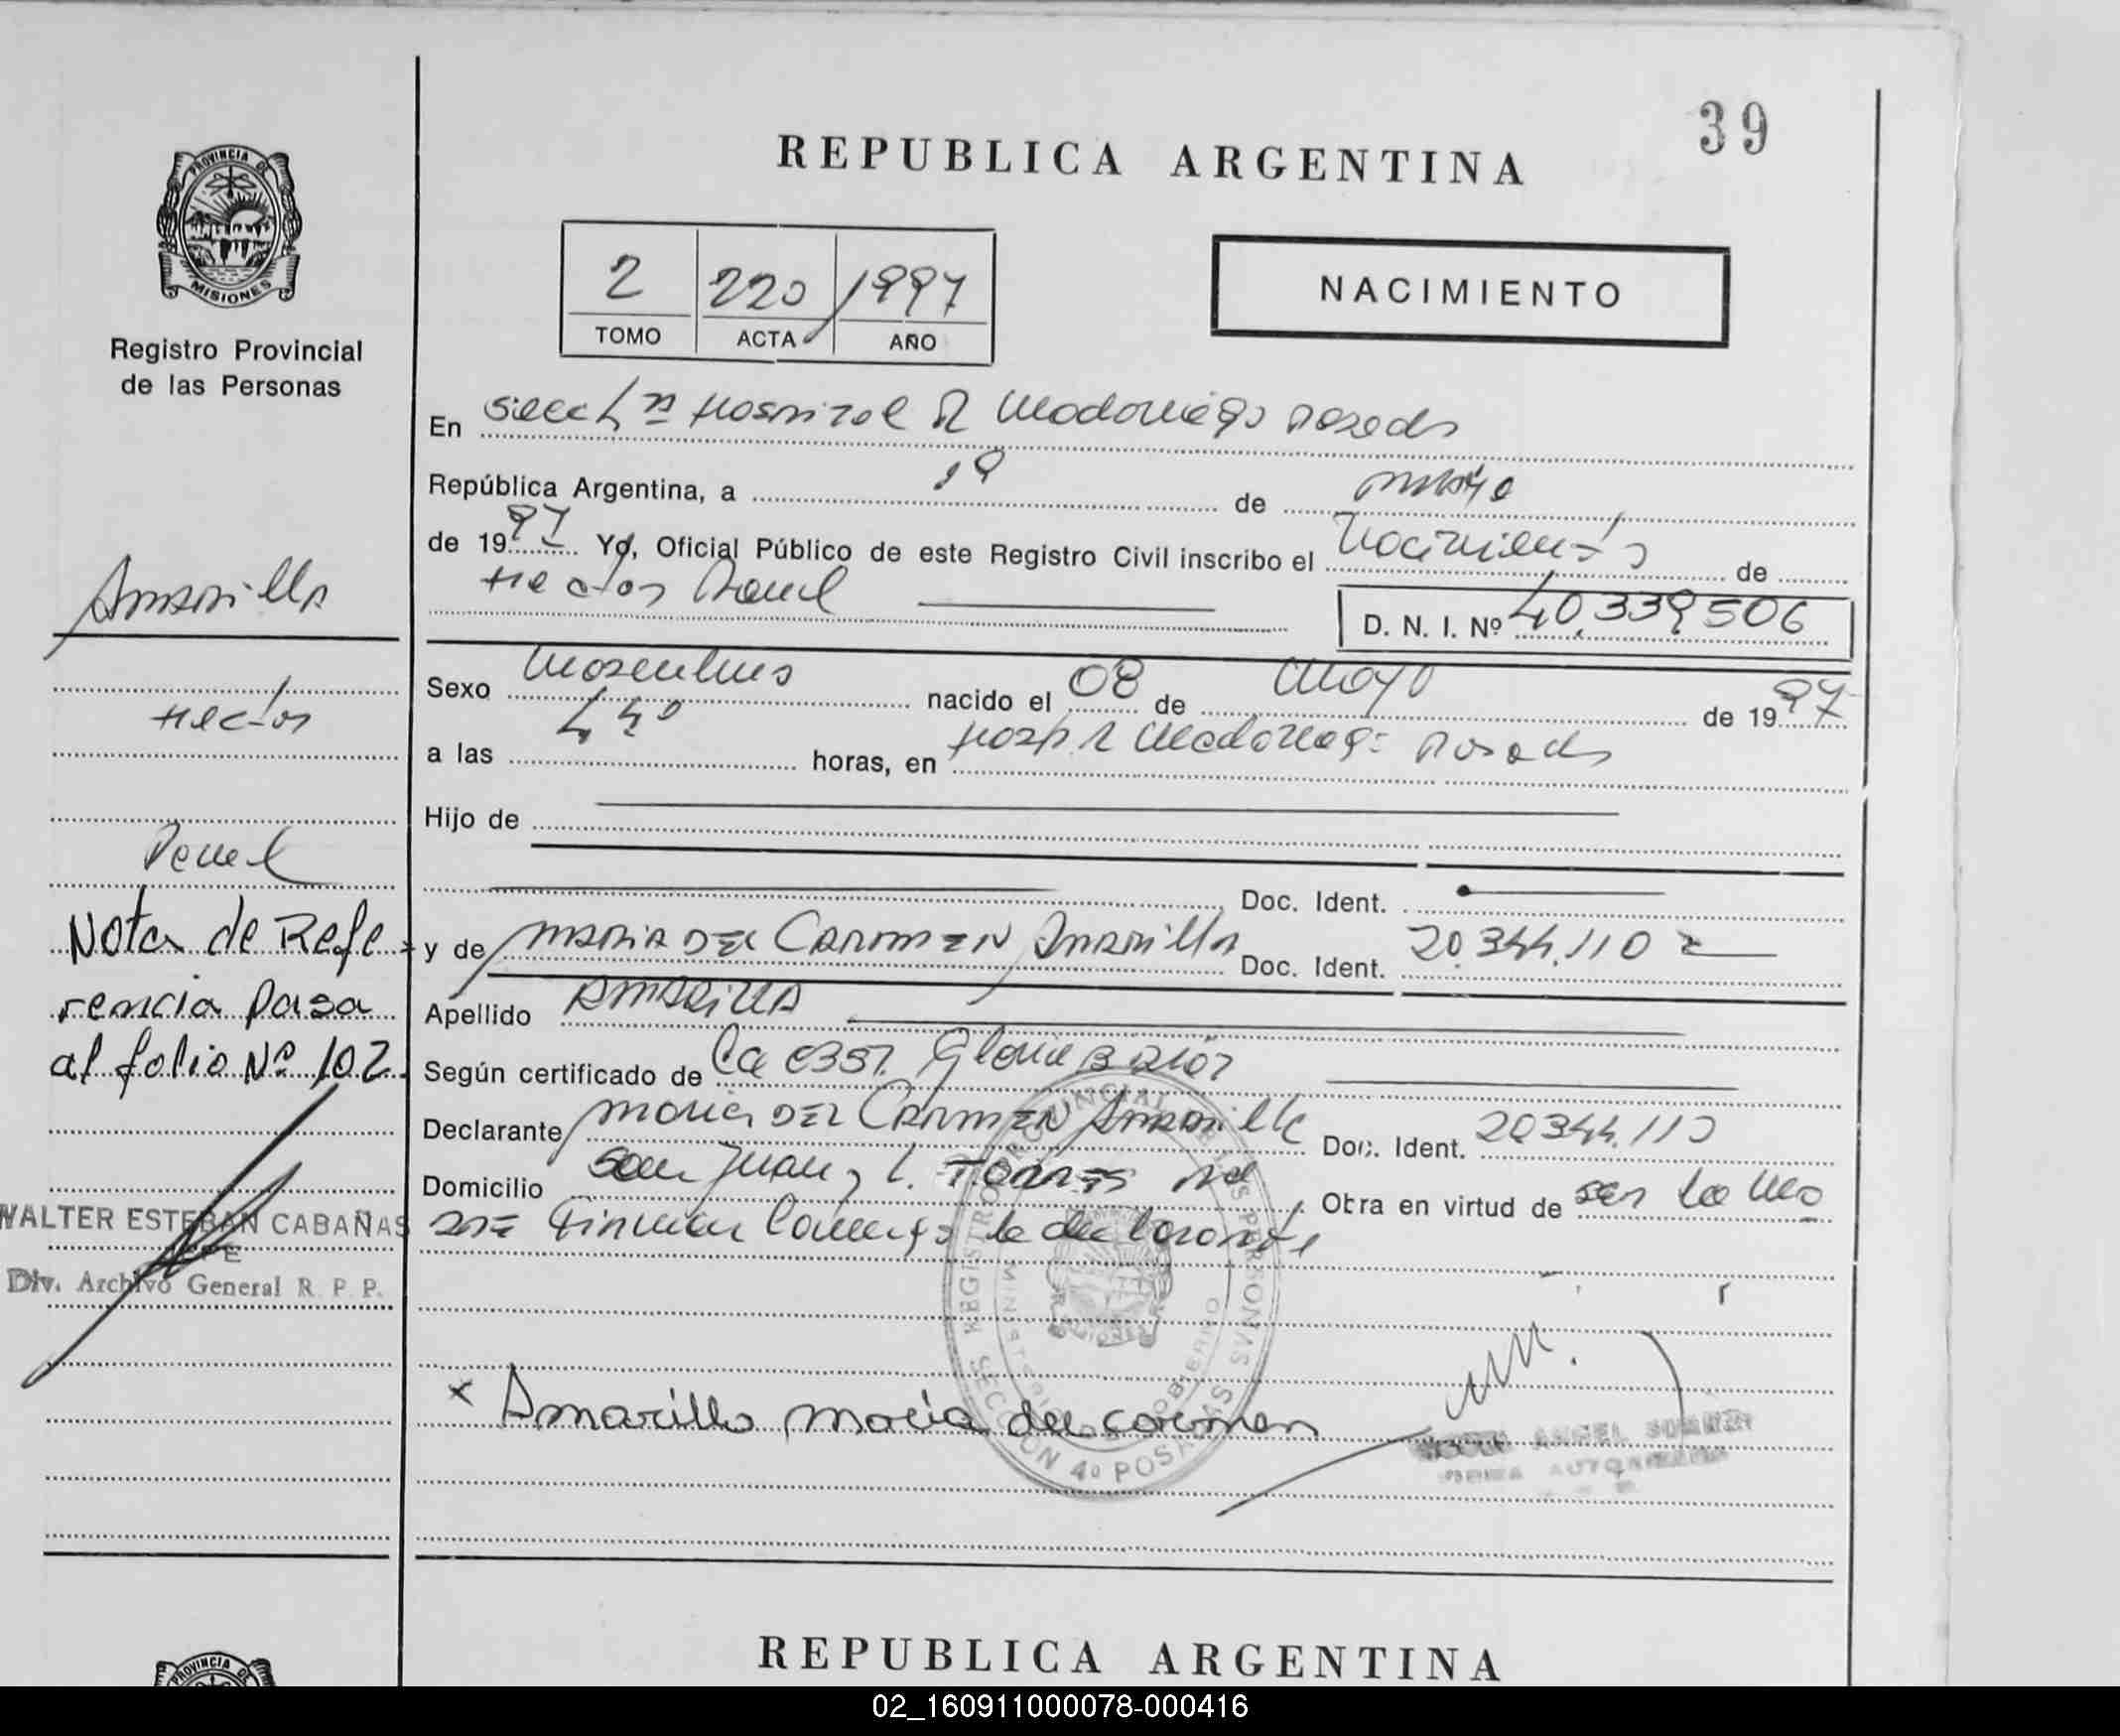 39
REPUBLICA ARGENTINA
PROVINCIA DE
MISIONES
Registro Provincial
de las Personas
2 220 1997
TOMO ACTA AÑO
NACIMIENTO
En Secc Hospital R Madariaga Posadas
República Argentina, a 19 de mayo
de 1997 Yo, Oficial Público de este Registro Civil inscribo el Nacimiento de
Hector
D. N. I. Nº 40.339.506
Amarilla
Hector
Sexo Masculino nacido el 08 de Mayo de 1997
a las 440 horas, en Hosp R Madariaga Posadas
Hijo de
Doc. Ident.
y de Maria del Carmen Amarilla Doc. Ident. 20.344.110
Apellido Amarilla
Según certificado de Gloria
Declarante Maria del Carmen Amarilla Doc. Ident. 20344.110
Domicilio San Juan y L. Torres Otra en virtud de ser
la declarante
Nota de Refe-
rencia pasa
al folio Nº 102
WALTER ESTEBAN CABAÑAS
JEFE
Div. Archivo General R. P. P.
REGISTRO PROVINCIAL DE LAS PERSONAS
SECCION 4º POSADAS
x Amarilla maria del carmen
ANGEL
REPUBLICA ARGENTINA
PROVINCIA DE
02_160911000078-000416